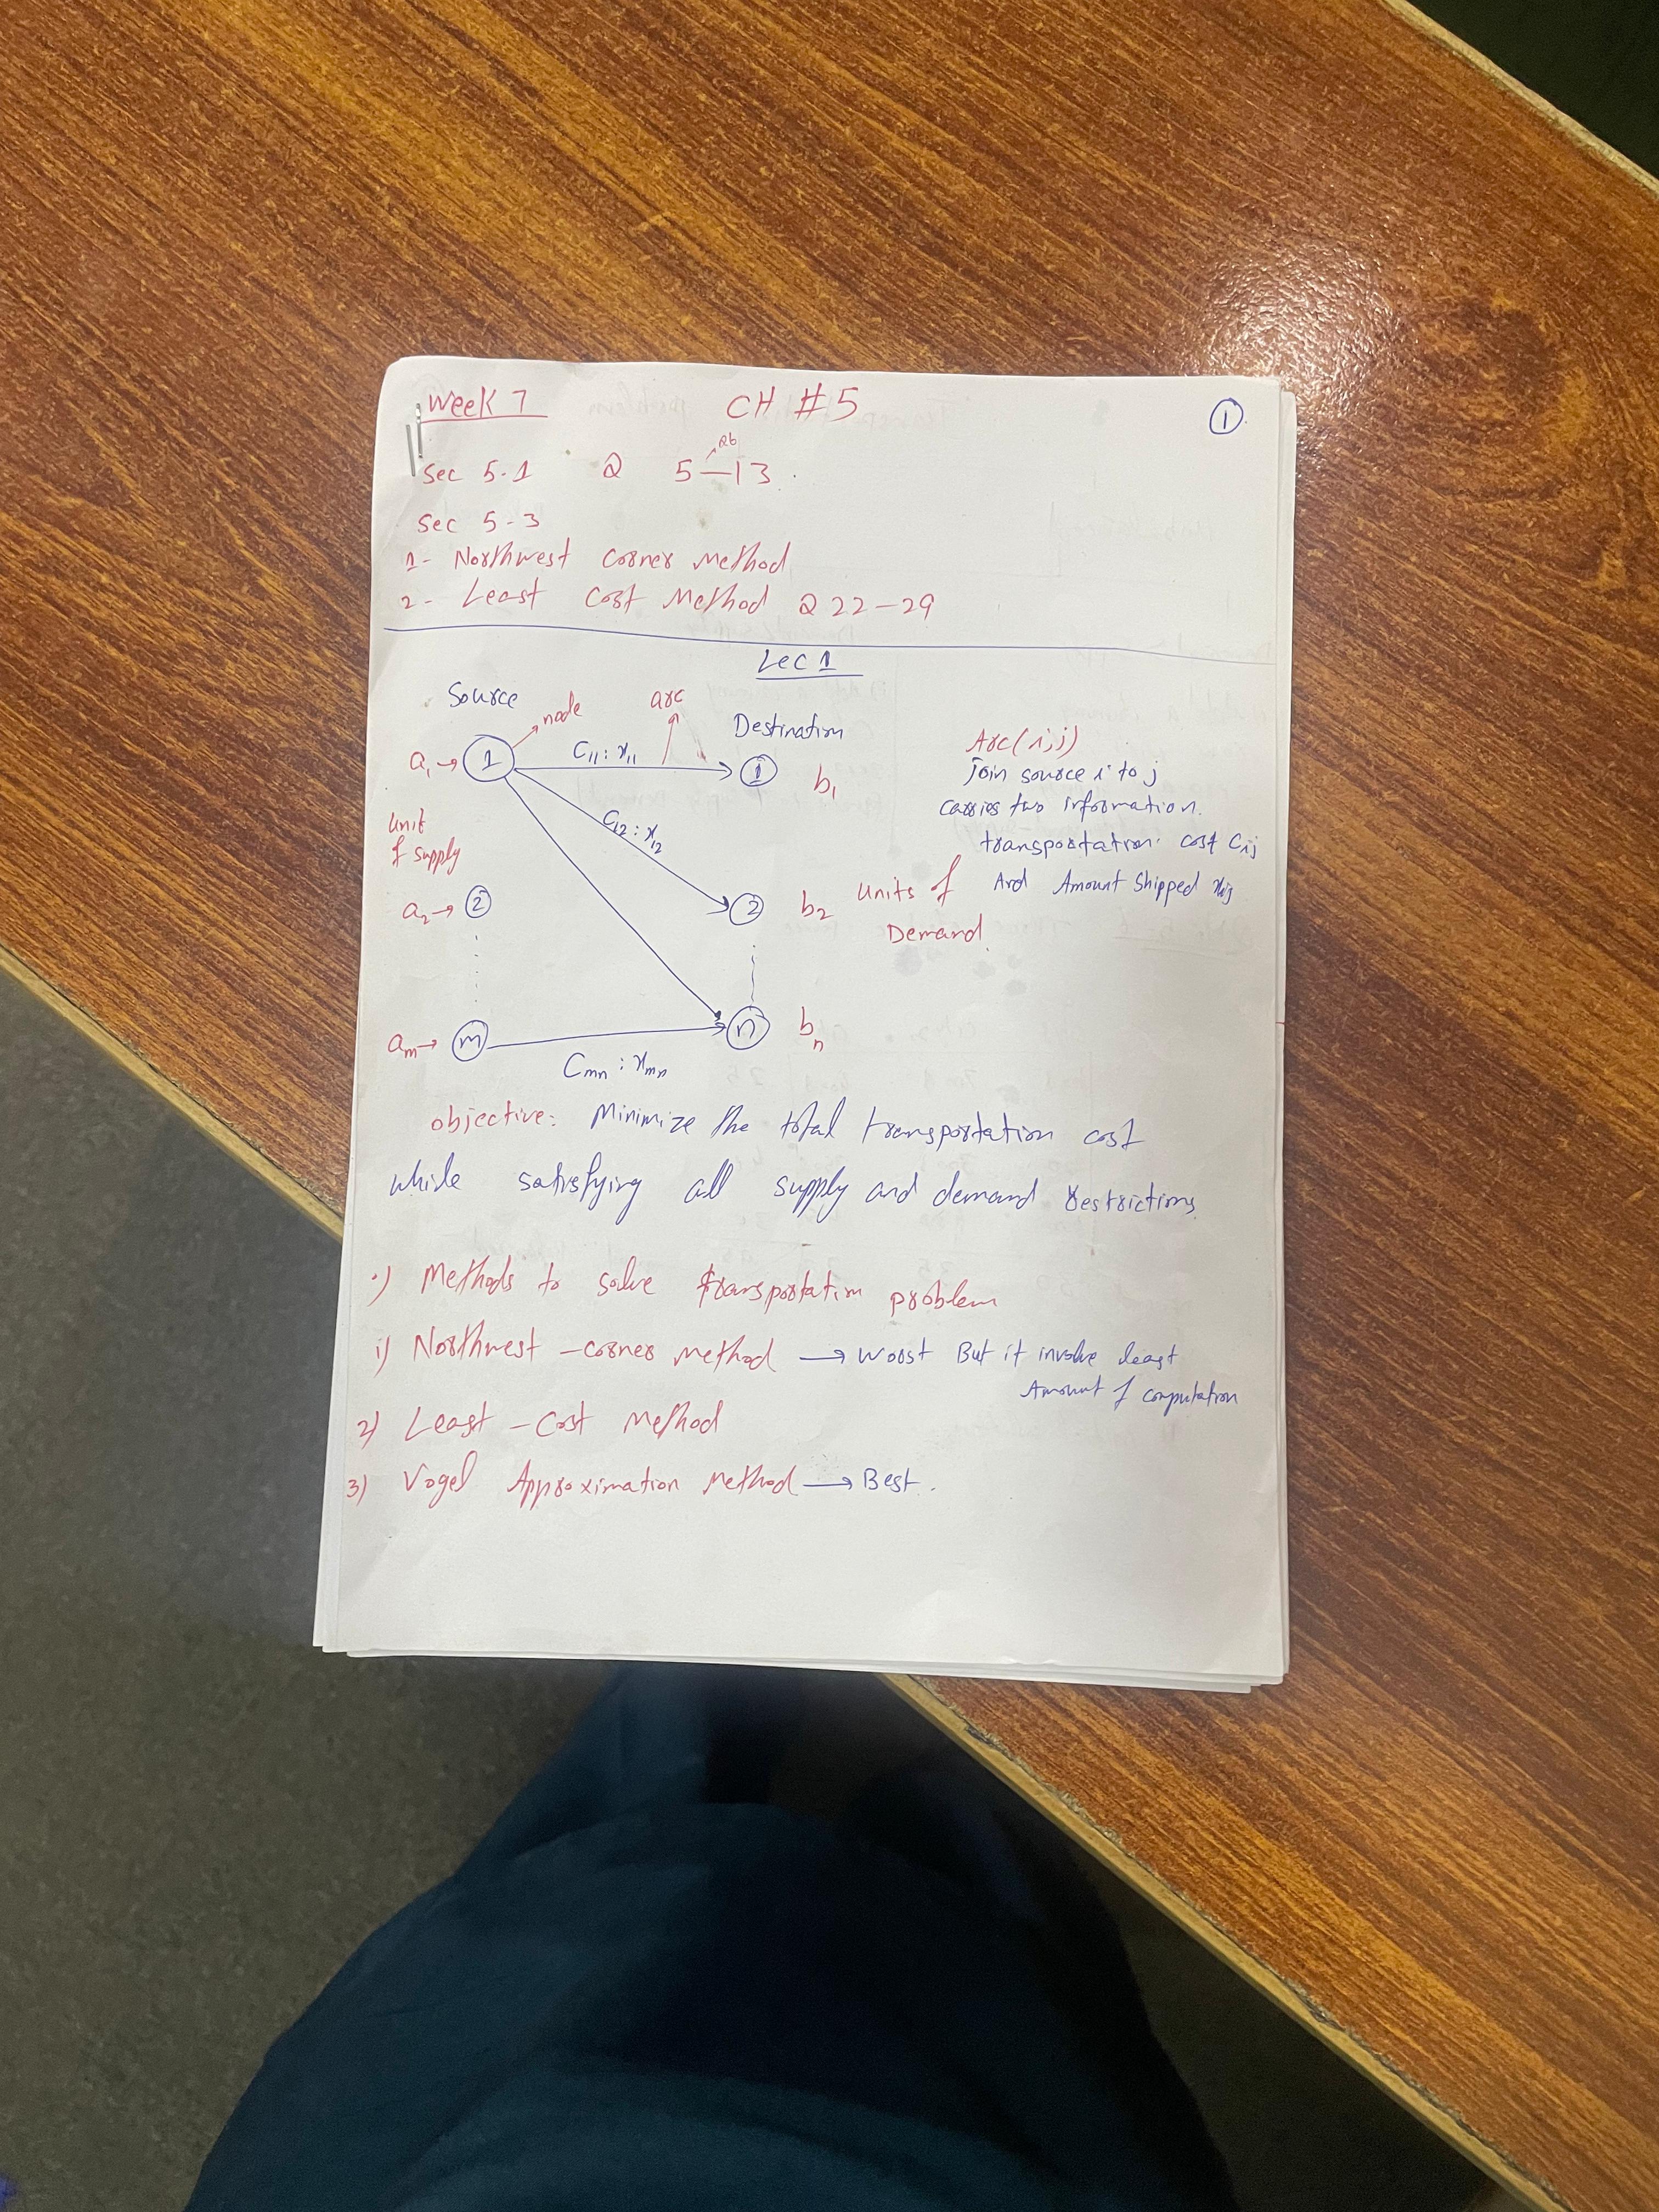 Week 7 CH #5 1
Q6
Sec 5.1 Q 5—13.
Sec 5-3
1- Northwest corner Method
2- Least Cost Method Q 22—29
Lec 1
Source node arc Destination
a1→ 1 C11 : x11 1 b1
C12 : x12
Unit
of supply
a2→ 2 2 b2 Units of
Demand
am→ m n bn
Cmn : xmn
Arc(i,j)
Join source i to j
carries two information.
transportation cost Cij
And Amount Shipped xij
objective: Minimize the total transportation cost
while satisfying all supply and demand restrictions.
.) Methods to solve transportation problem
i) Northwest-corner method → Worst But it involve least
Amount of computation
2) Least-Cost Method
3) Vogel Approximation Method → Best.